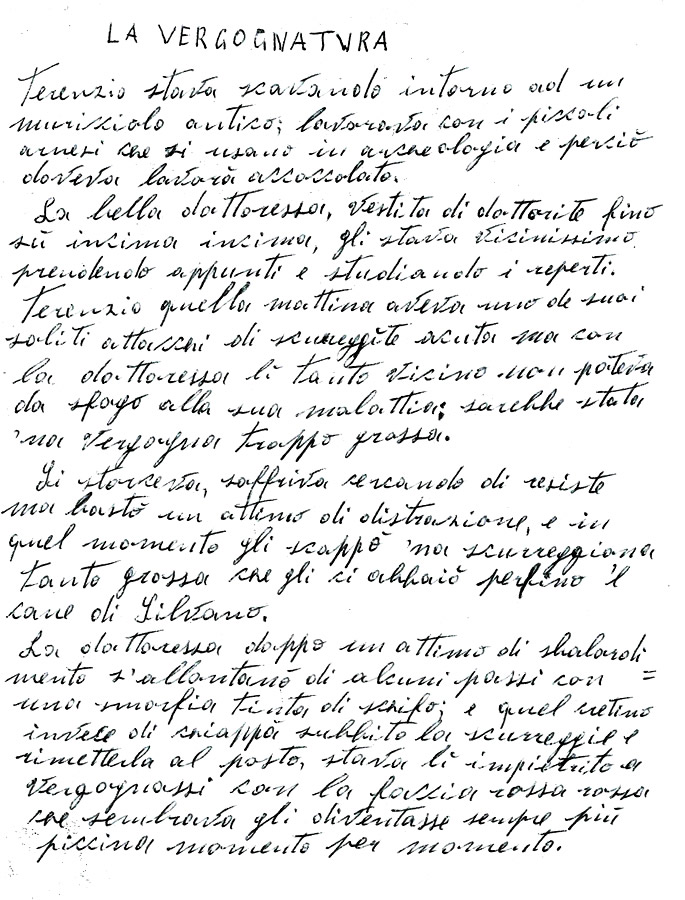 LA VERGOGNATURA
Terenzio stava scavando intorno ad un
muricciolo antico; lavorava con i piccoli
arnesi che si usano in archeologia e perciò
doveva lavorà accoccolato.
La bella dottoressa, vestita di dottorite fino
sù incima incima, gli stava vicinissimo
prendendo appunti e studiando i reperti.
Terenzio quella mattina aveva uno de suoi
soliti attacchi di scureggite acuta ma con
la dottoressa lì tanto vicino non poteva
da sfogo alla sua malattia; sarebbe stata
'na vergogna troppo grossa.
Si storceva, soffriva cercando di resiste
ma bastò un attimo di distrazione, e in
quel momento gli scappò 'na scurreggiona
tanto grossa che gli ci abbaiò perfino 'l
cane di Silvano.
La dottoressa doppo un attimo di sbalordi
mento s'allontanò di alcuni passi con =
una smorfia tinta di schifo; e quel cretino
invece di chiappà subbito la scurreggie e
rimetterla al posto, stava lì impietrito a
vergognassi con la faccia rossa rossa
che sembrava gli diventasse sempre più
piccina momento per momento.